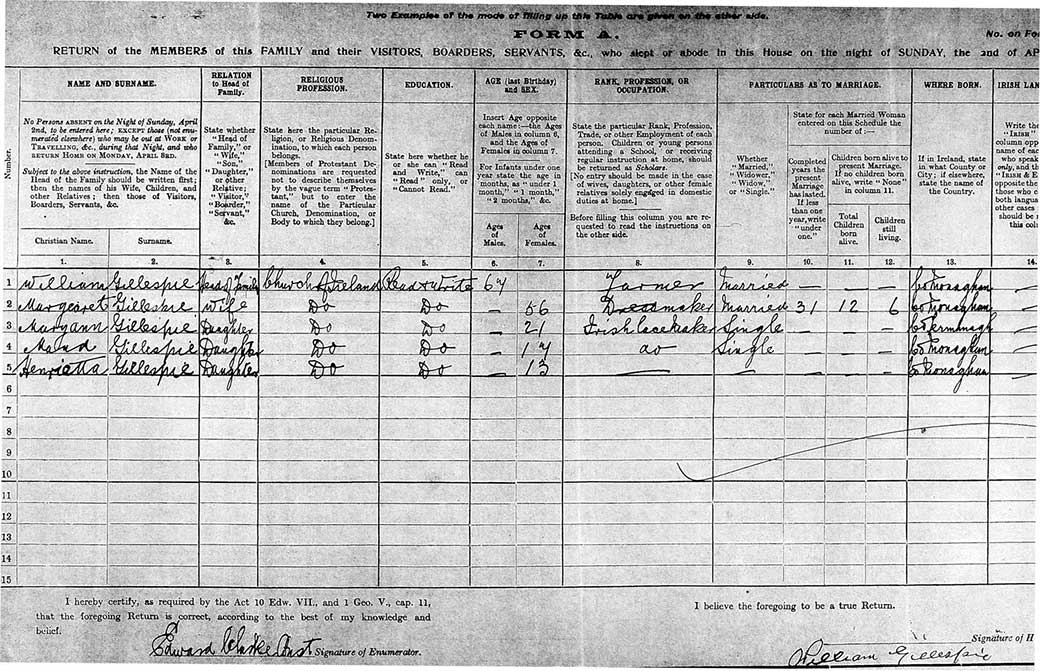 Two Examples of the mode of filling up this Table are given on the other side.
FORM A.
No. on Fo
RETURN of the MEMBERS of this FAMILY and their VISITORS, BOARDERS, SERVANTS, &c., who slept or abode in this House on the night of SUNDAY, the 2nd of AP
Number.
NAME AND SURNAME.
No Persons ABSENT on the Night of Sunday, April
2nd, to be entered here; EXCEPT those (not enu-
merated elsewhere) who may be out at WORK or
TRAVELLING, &c., during that Night, and who
RETURN HOME ON MONDAY, APRIL 3RD.
Subject to the above instruction, the Name of the
Head of the Family should be written first;
then the names of his Wife, Children, and
other Relatives; then those of Visitors,
Boarders, Servants, &c.
Christian Name. Surname.
RELATION
to Head of
Family.
State whether
"Head of
Family," or
"Wife,"
"Son,"
"Daughter,"
or other
Relative;
"Visitor,"
"Boarder,"
"Servant,"
&c.
RELIGIOUS
PROFESSION.
State here the particular Re-
ligion, or Religious Denomi-
nation, to which each person
belongs.
[Members of Protestant De-
nominations are requested
not to describe themselves
by the vague term "Protes-
tant," but to enter the
name of the Particular
Church, Denomination, or
Body to which they belong.]
EDUCATION.
State here whether he
or she can "Read
and Write," can
"Read" only, or
"Cannot Read."
AGE (last Birthday)
and SEX.
Insert Age opposite
each name:—the Ages
of Males in column 6,
and the Ages of
Females in column 7.
For Infants under one
year state the age in
months, as "under 1
month," "1 month,"
"2 months," &c.
Ages
of
Males.
Ages
of
Females.
RANK, PROFESSION, OR
OCCUPATION.
State the particular Rank, Profession,
Trade, or other Employment of each
person. Children or young persons
attending a School, or receiving
regular instruction at home, should
be returned as Scholars.
[No entry should be made in the case
of wives, daughters, or other female
relatives solely engaged in domestic
duties at home.]
Before filling this column you are re-
quested to read the instructions on
the other side.
PARTICULARS AS TO MARRIAGE.
Whether
"Married,"
"Widower,"
"Widow,"
or "Single."
State for each Married Woman
entered on this Schedule the
number of:—
Completed
years the
present
Marriage
has lasted.
If less
than one
year, write
"under
one."
Children born alive to
present Marriage.
If no children born
alive, write "None"
in column 11.
Total
Children
born
alive.
Children
still
living.
WHERE BORN.
If in Ireland, state
in what County or
City; if elsewhere,
state the name of
the Country.
IRISH LAN
Write the
"IRISH"
column opp
name of eac
who speak
only, and th
"IRISH & E
opposite the
those who c
both langua
other cases
should be
this colu
1. 2. 3. 4. 5. 6. 7. 8. 9. 10. 11. 12. 13. 14.
1 William Gillespie Head of Family Church of Ireland Read & Write 67 — Farmer Married — — — Co Monaghan —
2 Margaret Gillespie Wife Do Do — 56 Dressmaker Married 31 12 6 Co Monaghan —
3 Maryann Gillespie Daughter Do Do — 21 Irish lace Maker Single — — — Co Fermanagh —
4 Maud Gillespie Daughter Do Do — 17 do Single — — — Co Monaghan —
5 Henrietta Gillespie Daughter Do Do — 13 — Co Monaghan —
6
7
8
9
10
11
12
13
14
15
I hereby certify, as required by the Act 10 Edw. VII., and 1 Geo. V., cap. 11,
that the foregoing Return is correct, according to the best of my knowledge and
belief.
Edward Clarke Const Signature of Enumerator.
I believe the foregoing to be a true Return.
William Gillespie Signature of H